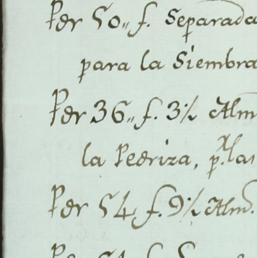 Per 50,, f. Separada
para la Siembra
Per 36,, f. 3½ Alm
la Pedriza, p.ª las
Per 54 f. 9½ Alm.